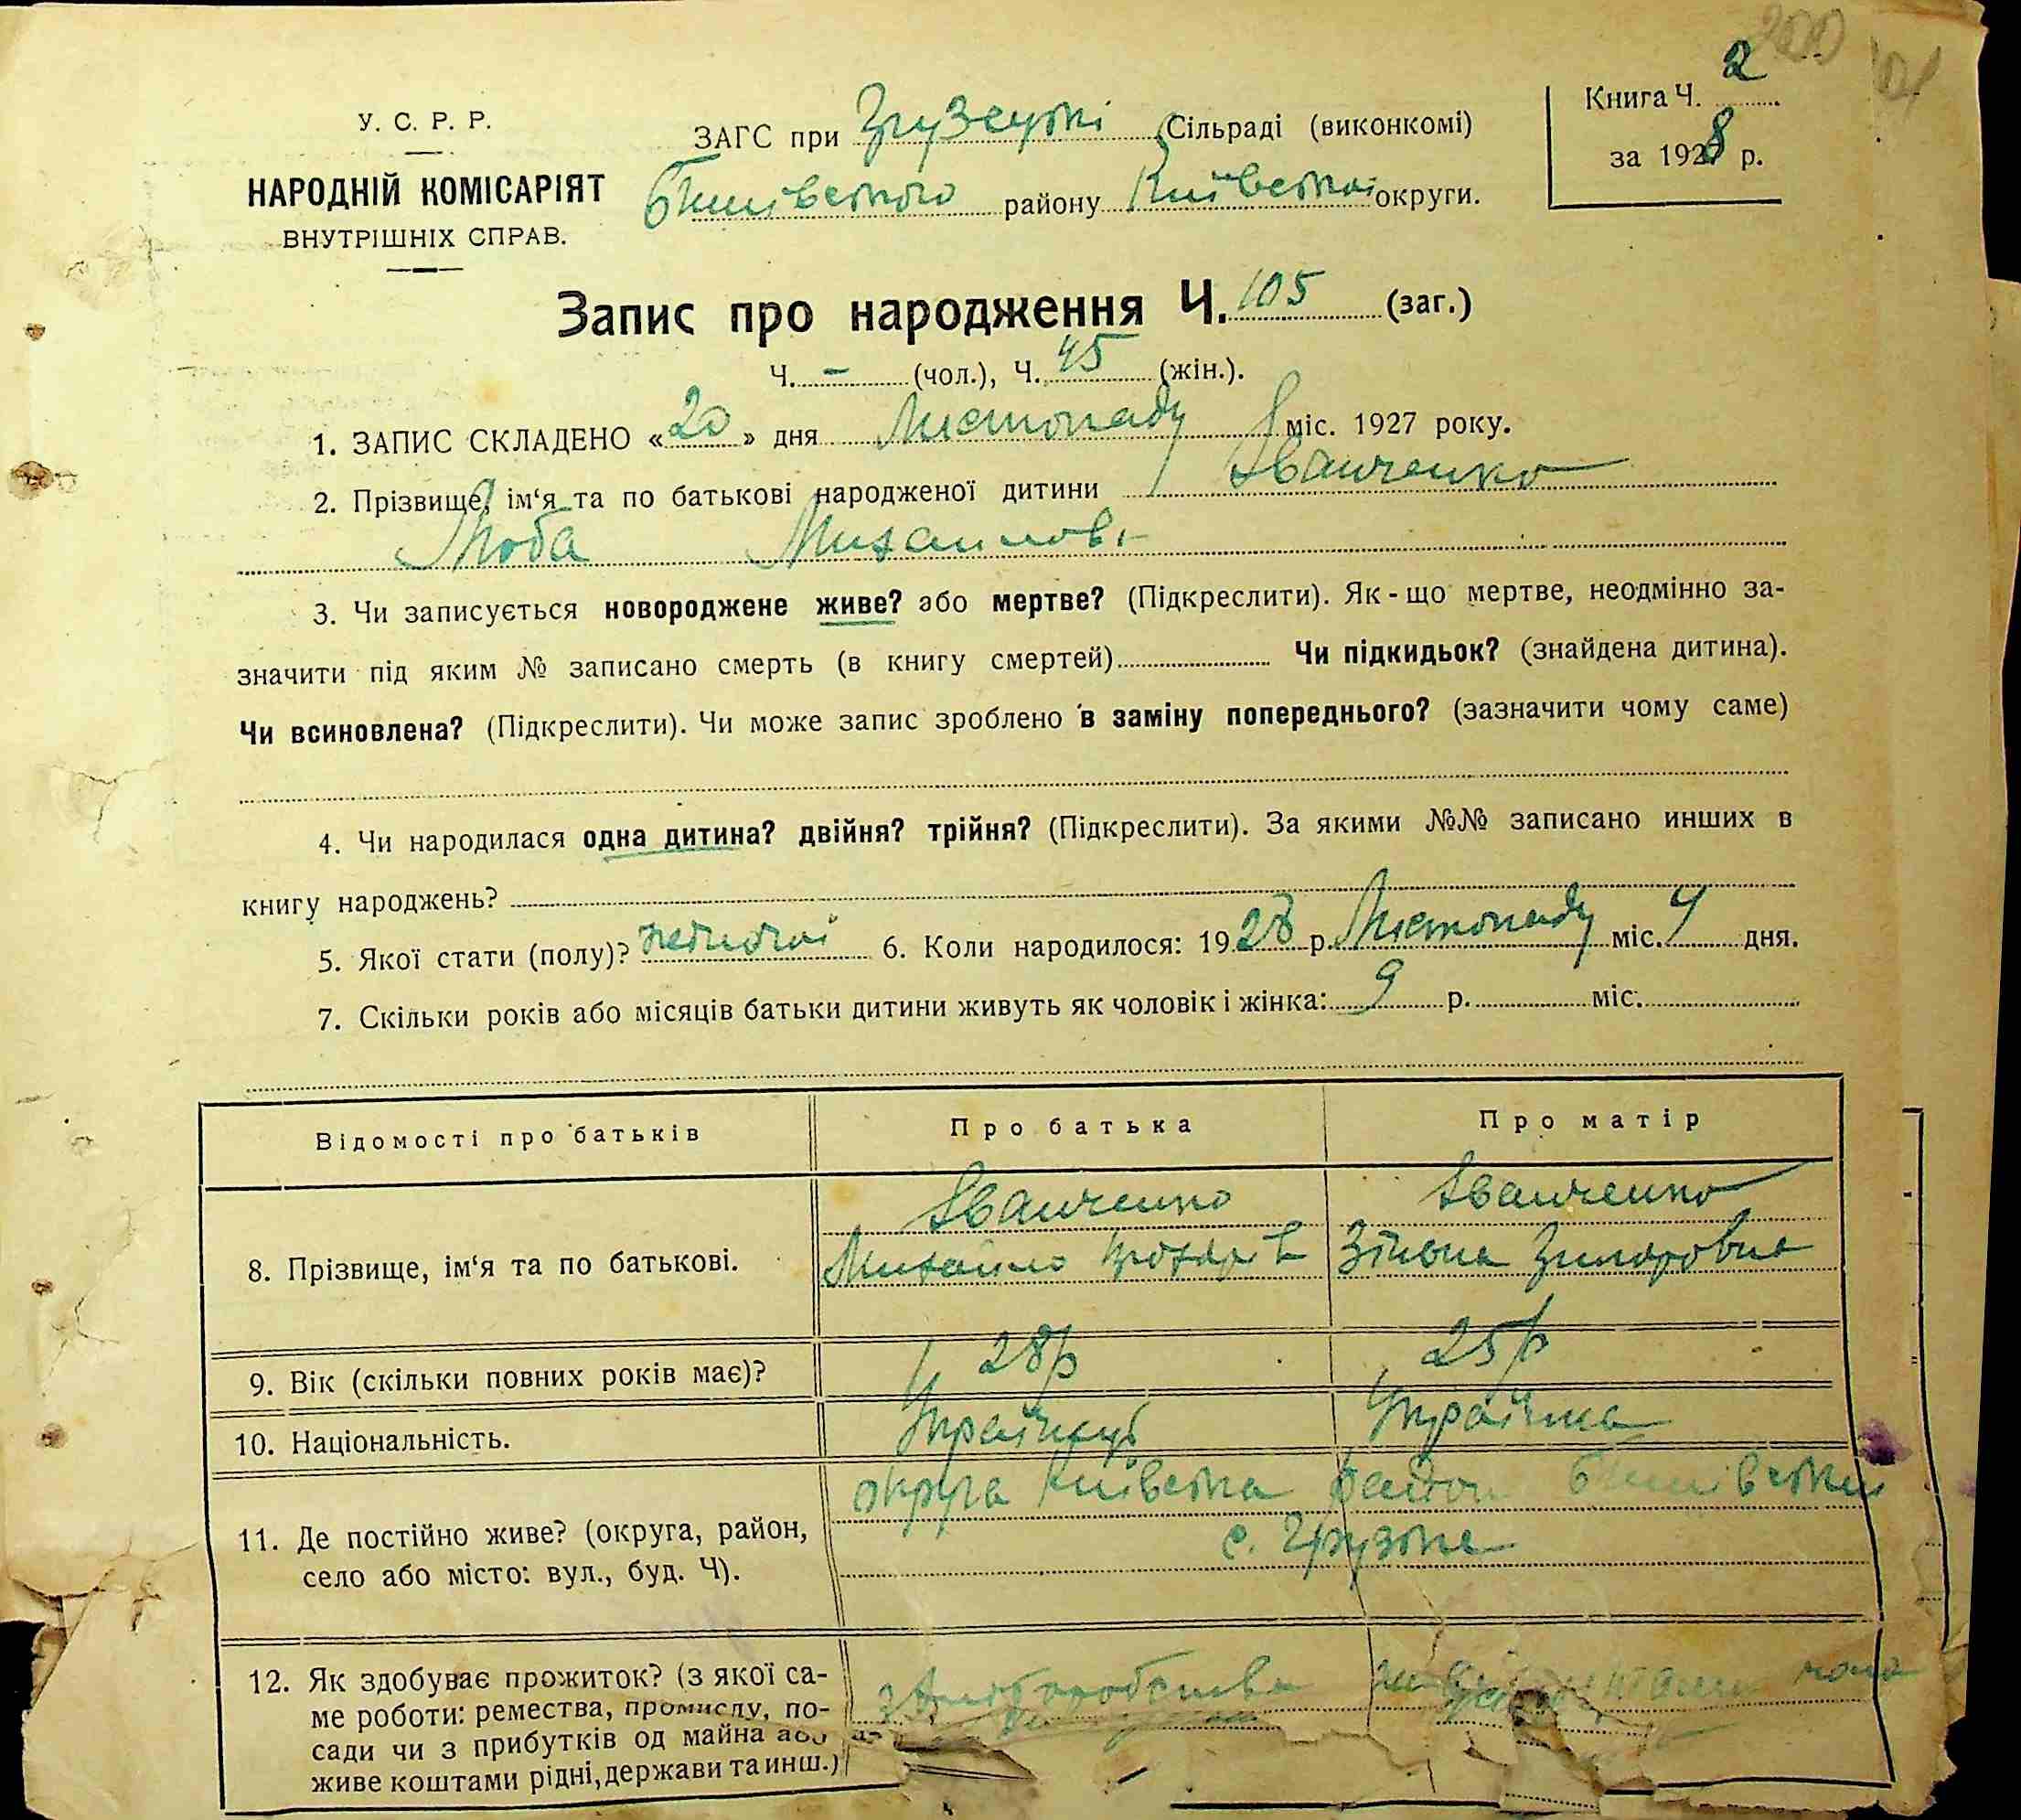 200
У. С. Р. Р.
НАРОДНІЙ КОМІСАРІЯТ
ВНУТРІШНІХ СПРАВ.
ЗАГС при Грузській Сільраді (виконкомі)
Бишівского району Київської округи.
Книга Ч. 2
за 1928 р.
Запис про народження Ч. 105 (заг.)
Ч. – (чол.), Ч. 45 (жін.).
1. ЗАПИС СКЛАДЕНО « 20 » дня Листопаду міс. 1927 8 року.
2. Прізвище, ім‘я та по батькові народженої дитини Іванченко
Люба Михаилов.
3. Чи записується новороджене живе? або мертве? (Підкреслити). Як-що мертве, неодмінно за-
значити під яким № записано смерть (в книгу смертей) Чи підкидьок? (знайдена дитина).
Чи всиновлена? (Підкреслити). Чи може запис зроблено в заміну попереднього? (зазначити чому саме)
4. Чи народилася одна дитина? двійня? трійня? (Підкреслити). За якими №№ записано инших в
книгу народжень?
5. Якої стати (полу)? жіночої 6. Коли народилося: 1928 р. Листопаду міс. 4 дня.
7. Скільки років або місяців батьки дитини живуть як чоловік і жінка: 9 р. міс.
Відомості про батьків Про батька Про матір
8. Прізвище, ім‘я та по батькові. Іванченко Іванченко
Михайло Зіновія
9. Вік (скільки повних років має)? 28 р 25 р
10. Національність. Українець Українка
11. Де постійно живе? (округа, район,
село або місто: вул., буд. Ч).
округа Київська район Бишівський
с. Грузьке
12. Як здобуває прожиток? (з якої са-
ме роботи: ремества, промислу, по-
сади чи з прибутків од майна або
живе коштами рідні, держави та инш.)
з хліборобства